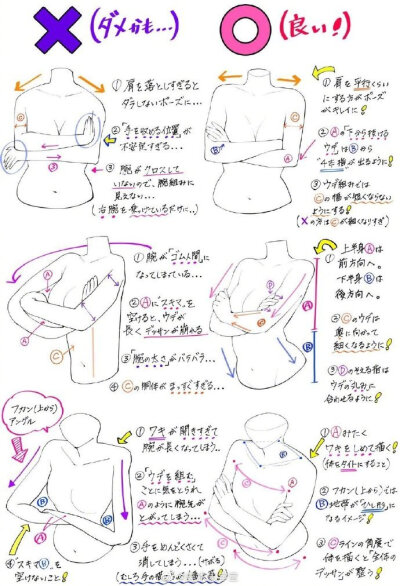 (ダメかも…)
(良い!)
①肩を落としすぎると
ダラしないポーズに…
②「手を収める位置」が
不安定すぎる…
③腕がクロスして
いないので、腕組みに
見えない…
(右腕を乗っけているだけに…)
①肩を平行くらい
にする方がポーズ
がキレイに!
②Ⓐ「下から抜ける
ウデ」はⒷから
"4本指"が出るように!
③ウデ組みでは
Ⓒの幅が短くならない
ようにする!
(✕の方はⒸが短くなりすぎ)
①腕が「ゴム人間」に
なってしまっている…
②Ⓐにスキマを
空けると、ウデが
長くデッサンが崩れる
③「腕の太さ」がバラバラ…
④Ⓒの胴体がまっすぐすぎる…
①上半身Ⓐは
前方向へ。
下半身Ⓑは
後方向へ。
②Ⓒのウデは
奥に向かって
細くなるように!
③Ⓓのそえる指は
ウデの丸みに
合わせるように!
フカン(上から)
アングル
①ワキが開きすぎて
腕が長くなってしまう。
②「ウデを組む」
ことに気をとられ
Ⓐのように腕先が
とがってしまう…
③手をめんどくさくて
消してしまう…(サボる)
④スキマⒷを
空けないこと!
①Ⓐみたく
ワキをしめて描く!
(体をタイトにすること)
②フカン(上から)では
Ⓑ地帯が「ひし形」に
なるイメージ!
③Ⓒラインの角度で
体を描くと「全体の
デッサン」が整う!